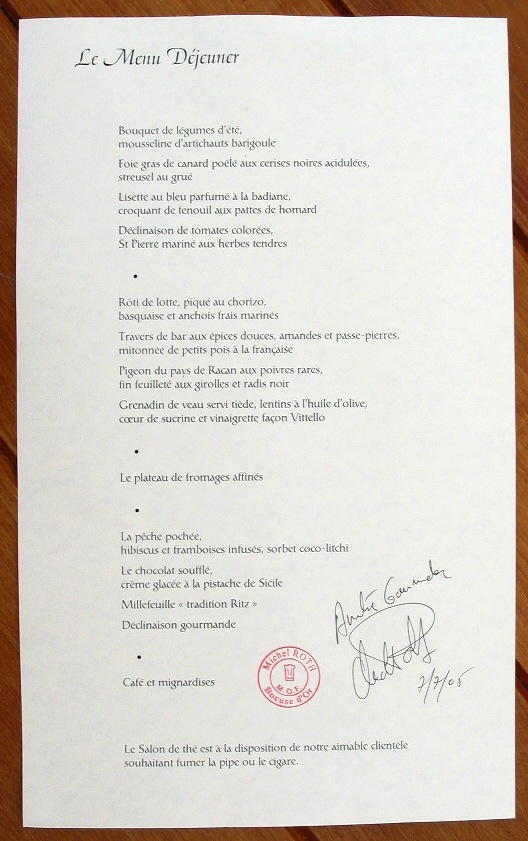 Le Menu Déjeuner
Bouquet de légumes d'été,
mousseline d'artichauts barigoule
Foie gras de canard poêlé aux cerises noires acidulées,
streusel au grué
Lisette au bleu parfumé à la badiane,
croquant de fenouil aux pattes de homard
Déclinaison de tomates colorées,
St Pierre mariné aux herbes tendres
•
Rôti de lotte, piqué au chorizo,
basquaise et anchois frais marinés
Travers de bar aux épices douces, amandes et passe-pierres,
mitonnée de petits pois à la française
Pigeon du pays de Racan aux poivres rares,
fin feuilleté aux girolles et radis noir
Grenadin de veau servi tiède, lentins à l'huile d'olive,
cœur de sucrine et vinaigrette façon Vittello
•
Le plateau de fromages affinés
•
La pêche pochée,
hibiscus et framboises infusés, sorbet coco-litchi
Le chocolat soufflé,
crème glacée à la pistache de Sicile
Millefeuille « tradition Ritz »
Déclinaison gourmande
•
Café et mignardises
Michel ROTH
M.O.F.
Bocuse d'Or
7/7/05
Le Salon de thé est à la disposition de notre aimable clientèle
souhaitant fumer la pipe ou le cigare.